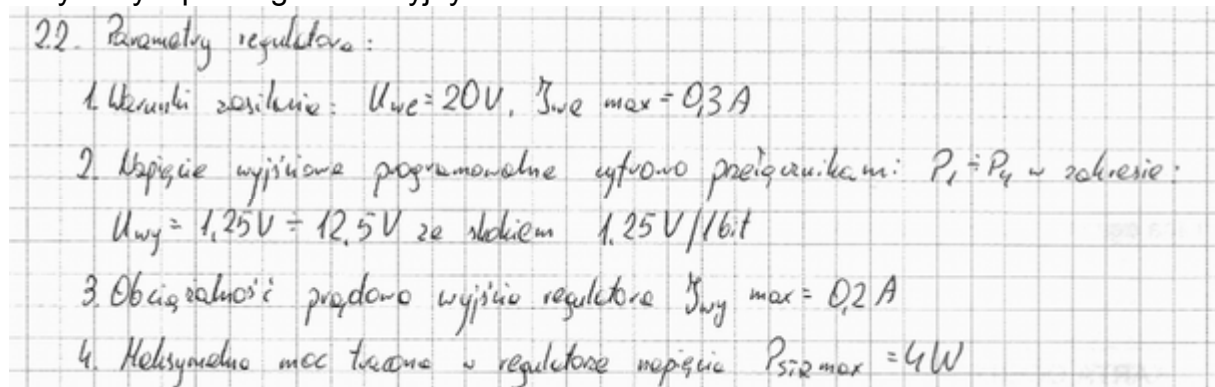 2.2. Parametry regulatora:
1. Warunki zasilania: Uwe = 20V, Iwe max = 0,3 A
2. Napięcie wyjściowe programowalne cyfrowo przełącznikami: P1 ÷ P4 w zakresie:
Uwy = 1,25V ÷ 12,5V ze skokiem 1,25 V/1bit
3. Obciążalność prądowa wyjścia regulatora Iwy max = 0,2 A
4. Maksymalna moc tracona w regulatorze napięcia Pstr max = 4W